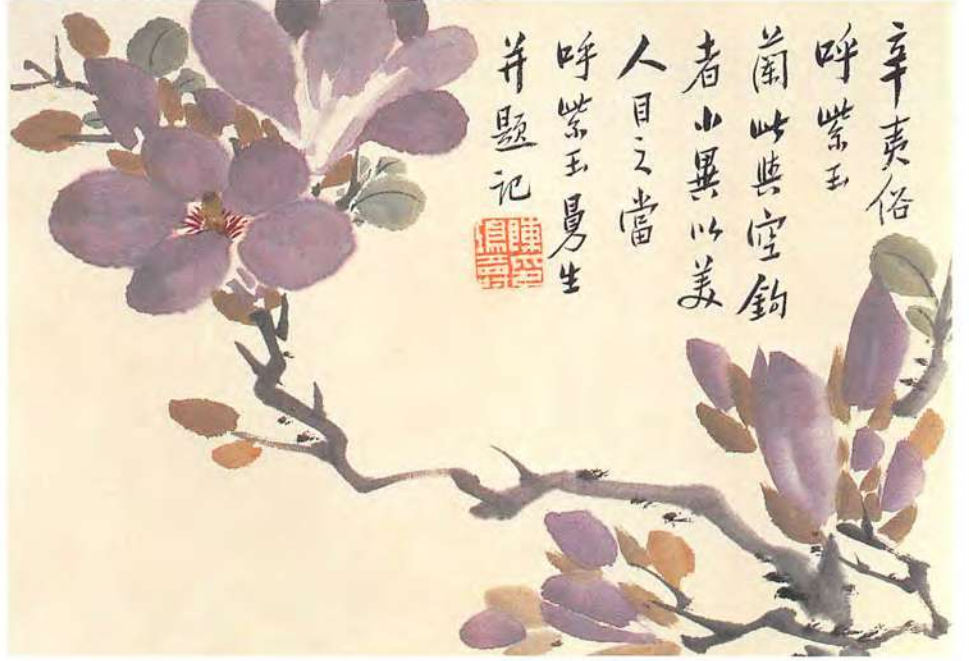 辛夷俗
呼紫玉
蘭此與空鉤
者小異以美
人目之當
呼紫玉曼生
并題記
陳印鴻壽